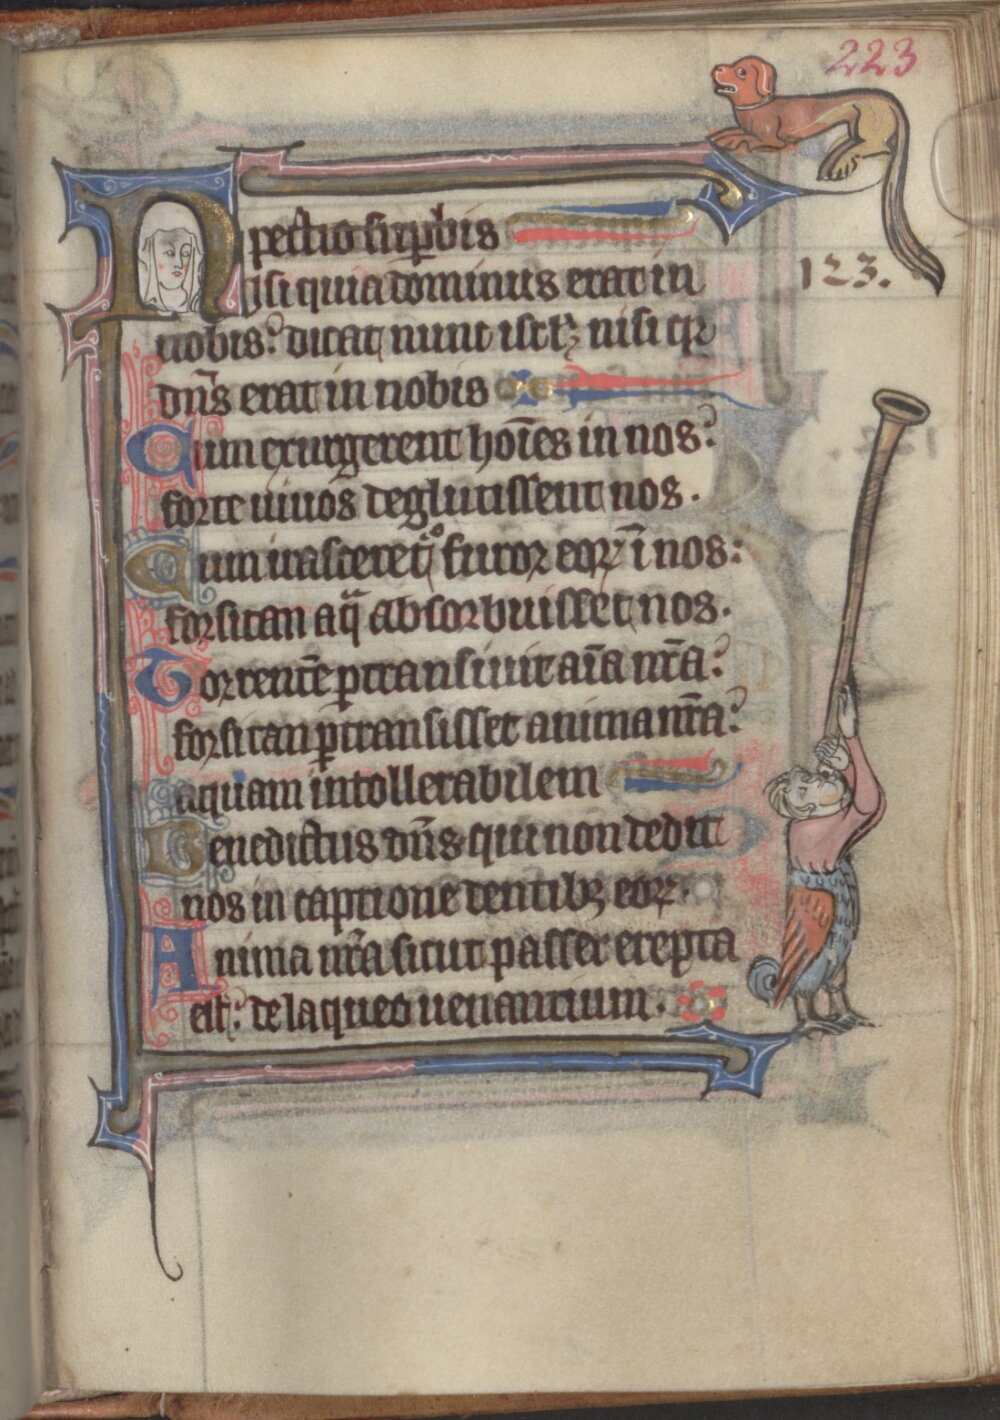 223
pectio suꝑbis
Nisi quia dominus erat in
123.
nobis: dicat nunc isrł; nisi qꝛ
dn̄s erat in nobis
Cum exurgerent hoīes in nos:
forte uiuos deglutissent nos.
Cum irasceret᷑ furor eoꝝ ī nos:
forsitan aq̄ absorbuisset nos.
Torrentē ꝑtransiuit aīa nr̄a:
forsitan ꝑtransisset anima nr̄a:
aquam intollerabilem
Benedictus dn̄s qui non dedit
nos in captione dentibꝫ eoꝝ.
Anima nr̄a sicut passer erepta
est: de laqueo uenantium.